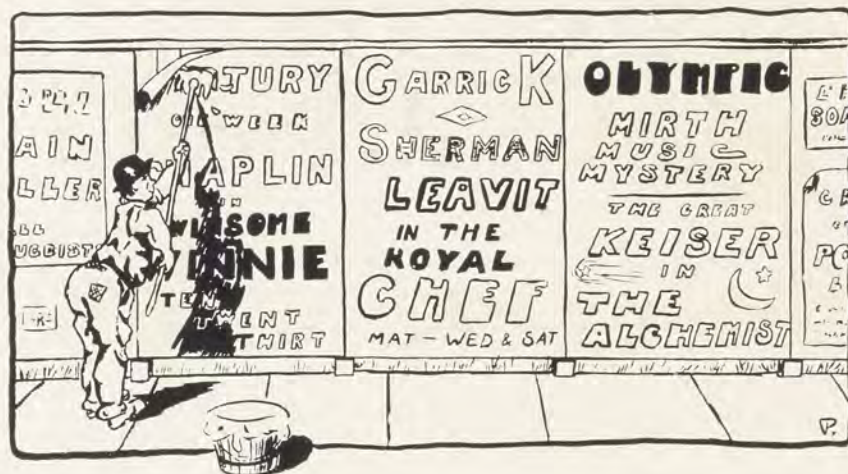 AIN
LLER
UGGIST
JURY
ONE WEEK
HAPLIN
IN
WINSOME
WINNIE
TEN
TWENT
THIRT
GARRICK
SHERMAN
LEAVIT
IN THE
ROYAL
CHEF
MAT - WED & SAT
OLYMPIC
MIRTH
MUSIC
MYSTERY
THE GREAT
KEISER
IN
THE
ALCHEMIST
P.